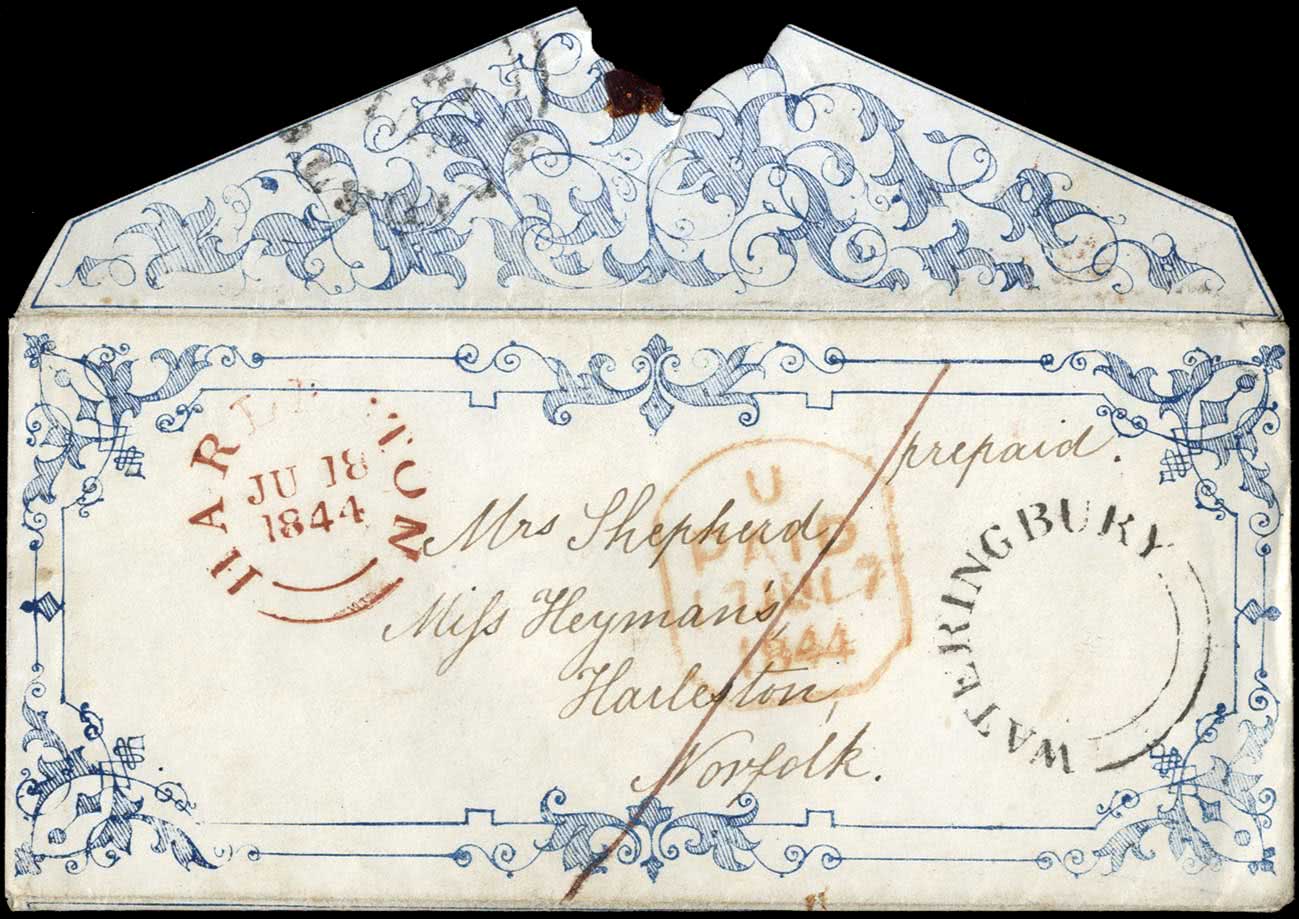 prepaid.
HARLESTON
JU 18
1844
U
PAID
17 JU 17
1844
Mrs Shepherd,
Miss Heyman's,
Harleston,
Norfolk.
WATERINGBURY